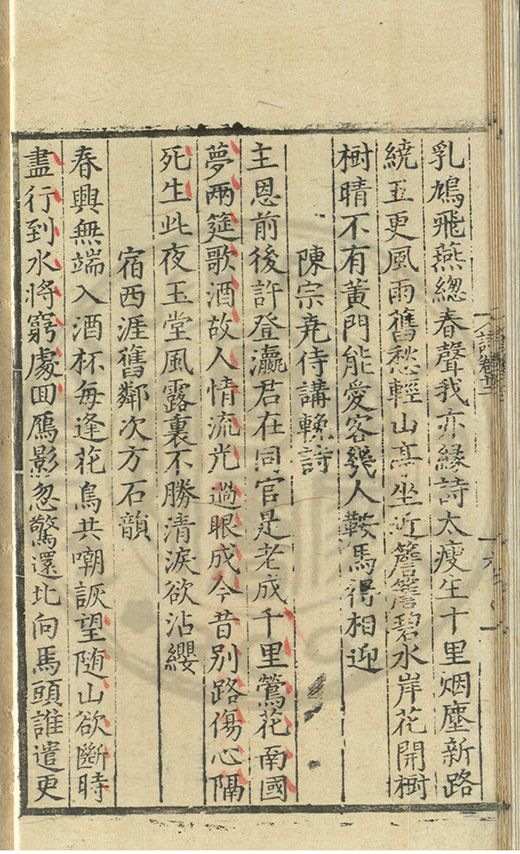 乳鳩飛燕緫春聲我亦緣詩太瘦生十里烟塵新路
繞玉更風雨舊愁輕山亭坐近簷簷碧水岸花開樹
樹晴不有黃門能愛客幾人鞍馬得相迎
陳宗堯侍講輓詩
主恩前後許登瀛君在同官是老成千里鶯花南國
夢兩筵歌酒故人情流光過眼成今昔別路傷心隔
死生此夜玉堂風露裏不勝清淚欲沾纓
宿西涯舊鄰次方石韻
春興無端入酒杯每逢花鳥共嘲詼望随山欲斷時
盡行到水將窮處囬鴈影忽驚還北向馬頭誰遣更